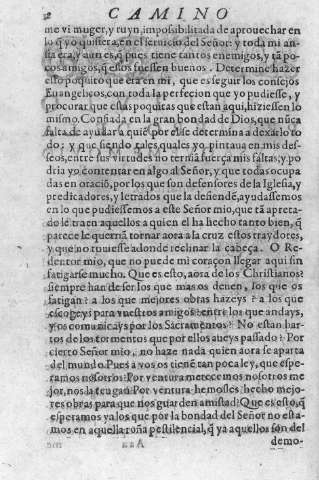 CAMINO
me vi muger, y ruyn, impossibilitada de aprouechar en
lo q̃ yo quisiera, en el seruicio del Señor: y toda mi an-
sia era, y aun es, q̃ pues tiene tantos enemigos, y tã po-
cos amigos, q̃ estos fuessen buenos. Determine hazer
esto poquito que era en mi, que es seguir los consejos
Euangelicos, con toda la perfecion que yo pudiesse, y
procurar que estas poquitas que estan aqui, hiziessen lo
mismo. Confiada en la gran bondad de Dios, que nũca
falta de ayudar a quiẽ por el se determina a dexarlo to-
do: y que siendo tales, quales yo pintaua en mis des-
seos, entre sus virtudes no ternia fuerça mis faltas, y po-
dria yo contentar en algo al Señor, y que todas ocupa-
das en oraciõ, por los que son defensores de la Iglesia, y
predicadores, y letrados que la defiendẽ, ayudassemos
en lo que pudiessemos a este Señor mio, que tã apreta-
do le traen aquellos a quien el ha hecho tanto bien, q̃
parece le querriã tornar aora a la cruz estos traydores,
y que no tuuiesse adonde reclinar la cabeça. O Re-
dentor mio, que no puede mi coraçon llegar aqui sin
fatigarse mucho. Que es esto, aora de los Christianos?
siempre han de ser los que mas os deuen, los que os
fatigan? a los que mejores obras hazeys? a los que
escogeys para vuestros amigos? entre los que andays,
y os comunicays por los Sacramentos? No estan har-
tos de los tormentos que por ellos aueys passado? Por
cierto Señor mio, no haze nada quien aora se aparta
del mundo. Pues a vos os tienẽ tan poca ley, que espe-
ramos nosotros? Por ventura merecemos nosotros me
jor, nos la tengan? Por ventura hemosles hecho mejo-
res obras para que nos guarden amistad? Que es esto, q̃
esperamos ya los que por la bondad del Señor no esta-
mos en aquella roña pestilencial, q̃ ya aquellos son del
demo-